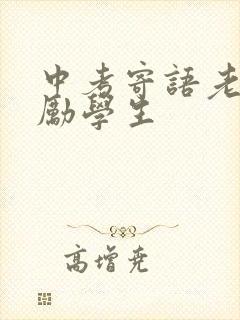 中考寄語老
勵學生
高增堯